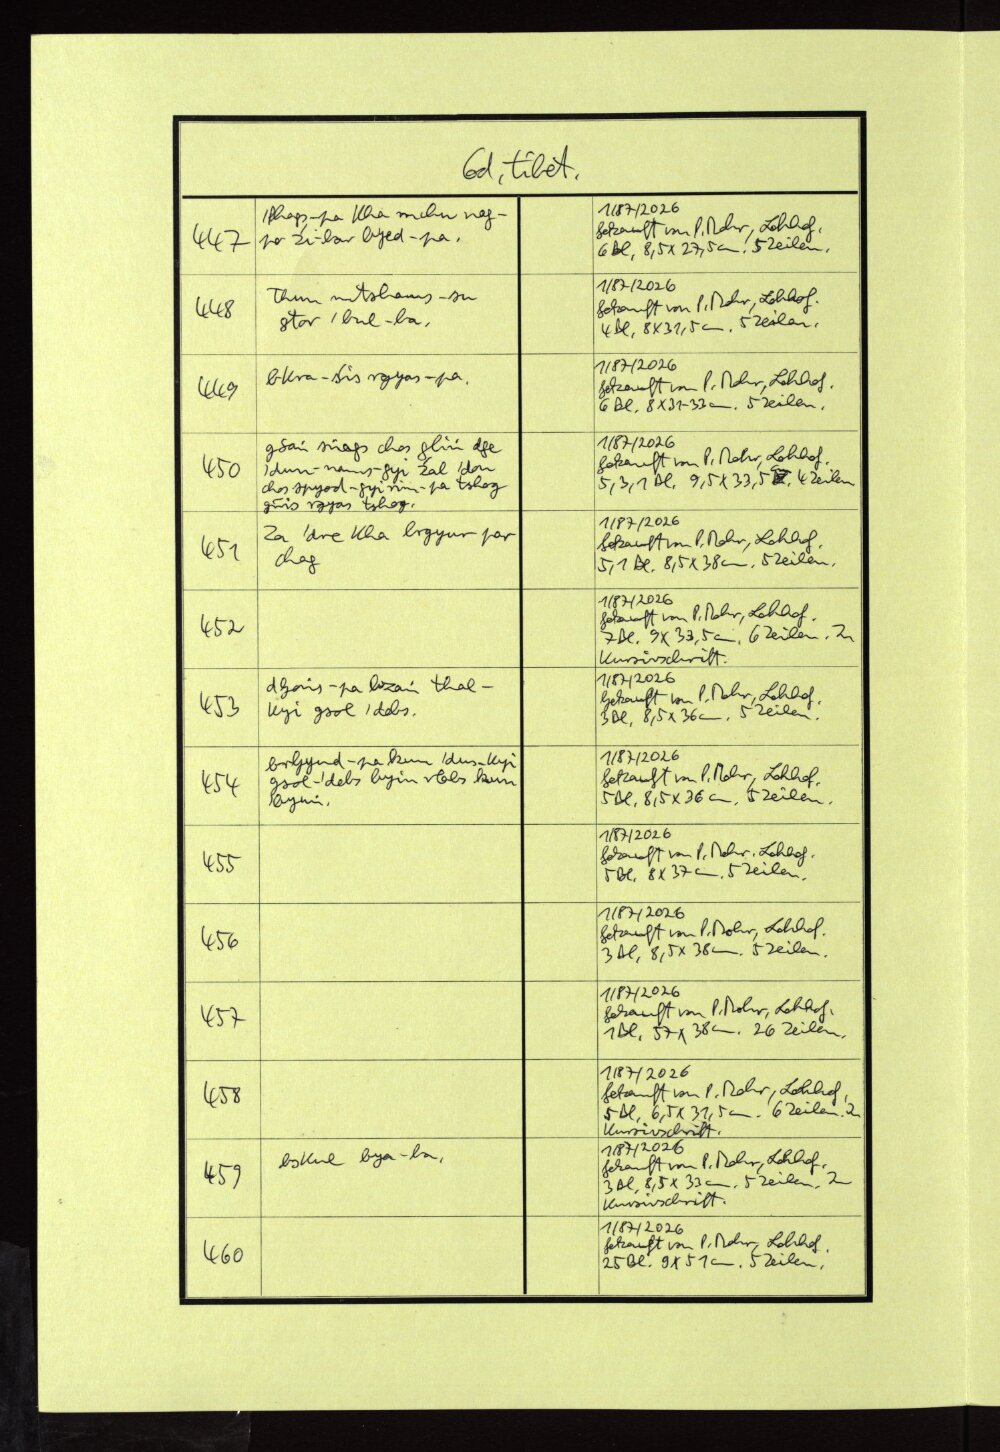 Cod. tibet.
447
'Phags-pa kha mchu nag-
po źi-bar byed-pa.
1/87/2026
Gekauft von P. Mohr, Lohhof.
6 Bl, 8,5 x 27,5 cm. 5 Zeilen.
448
Thun mtshams-su
gtor 'bul-ba.
1/87/2026
Gekauft von P. Mohr, Lohhof.
4 Bl, 8 x 31,5 cm. 5 Zeilen.
449
bkra-śis rgyas-pa.
1/87/2026
Gekauft von P. Mohr, Lohhof.
6 Bl. 8 x 31-33 cm. 5 Zeilen.
450
gSaṅ sṅags chos gliṅ dge
'dun-rnams-gyi źal 'don
chos spyod-gyi rim-pa tshog
gñis rgyas tshog.
1/87/2026
Gekauft von P. Mohr, Lohhof.
5, 3, 1 Bl. 9,5 x 33,5 4 Zeilen
451
Za 'dre kha brgyur par
chag
1/87/2026
Gekauft von P. Mohr, Lohhof.
5, 1 Bl. 8,5 x 38 cm. 5 Zeilen.
452
1/87/2026
Gekauft von P. Mohr, Lohhof.
7 Bl. 9 x 33,5 cm. 6 Zeilen. In
Kursivschrift.
453
dgoṅs-pa bzaṅ thal-
kyi gsol 'debs.
1/87/2026
Gekauft von P. Mohr, Lohhof.
3 Bl, 8,5 x 36 cm. 5 Zeilen.
454
brgyud-pa kun 'dus-kyi
gsol-'debs byin rlabs kun
1/87/2026
Gekauft von P. Mohr, Lohhof.
5 Bl, 8,5 x 36 cm. 5 Zeilen.
455
1/87/2026
Gekauft von P. Mohr. Lohhof.
5 Bl, 8 x 37 cm. 5 Zeilen.
456
1/87/2026
Gekauft von P. Mohr, Lohhof.
3 Bl, 8,5 x 38 cm. 5 Zeilen.
457
1/87/2026
Gekauft von P. Mohr, Lohhof.
1 Bl, 57 x 38 cm. 26 Zeilen.
458
1/87/2026
Gekauft von P. Mohr, Lohhof.
5 Bl, 6,5 x 31,5 cm. 6 Zeilen. In
Kursivschrift.
459
bskul bya-ba.
1/87/2026
Gekauft von P. Mohr, Lohhof.
3 Bl, 8,5 x 33 cm. 5 Zeilen. In
Kursivschrift.
460
1/87/2026
Gekauft von P. Mohr, Lohhof.
25 Bl. 9 x 51 cm. 5 Zeilen.